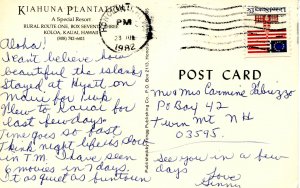 KIAHUNA PLANTATION
A Special Resort
RURAL ROUTE ONE, BOX SEVENTY
KOLOA, KAUAI, HAWAII
(808) 742-6411
PM
1982
POST CARD
Aloha!
I can't believe how
beautiful the islands
Stayed at Hyatt on
Maui for
flew to Kauai for
last few days
Time goes so fast
Think night life is
in T.M. I have seen
6 movies in 7 days.
It as quiet as
Mr + Mrs Carmine
PO Box 42
Twin Mt NH
03595.
See you in a few
days
Love
Ginny